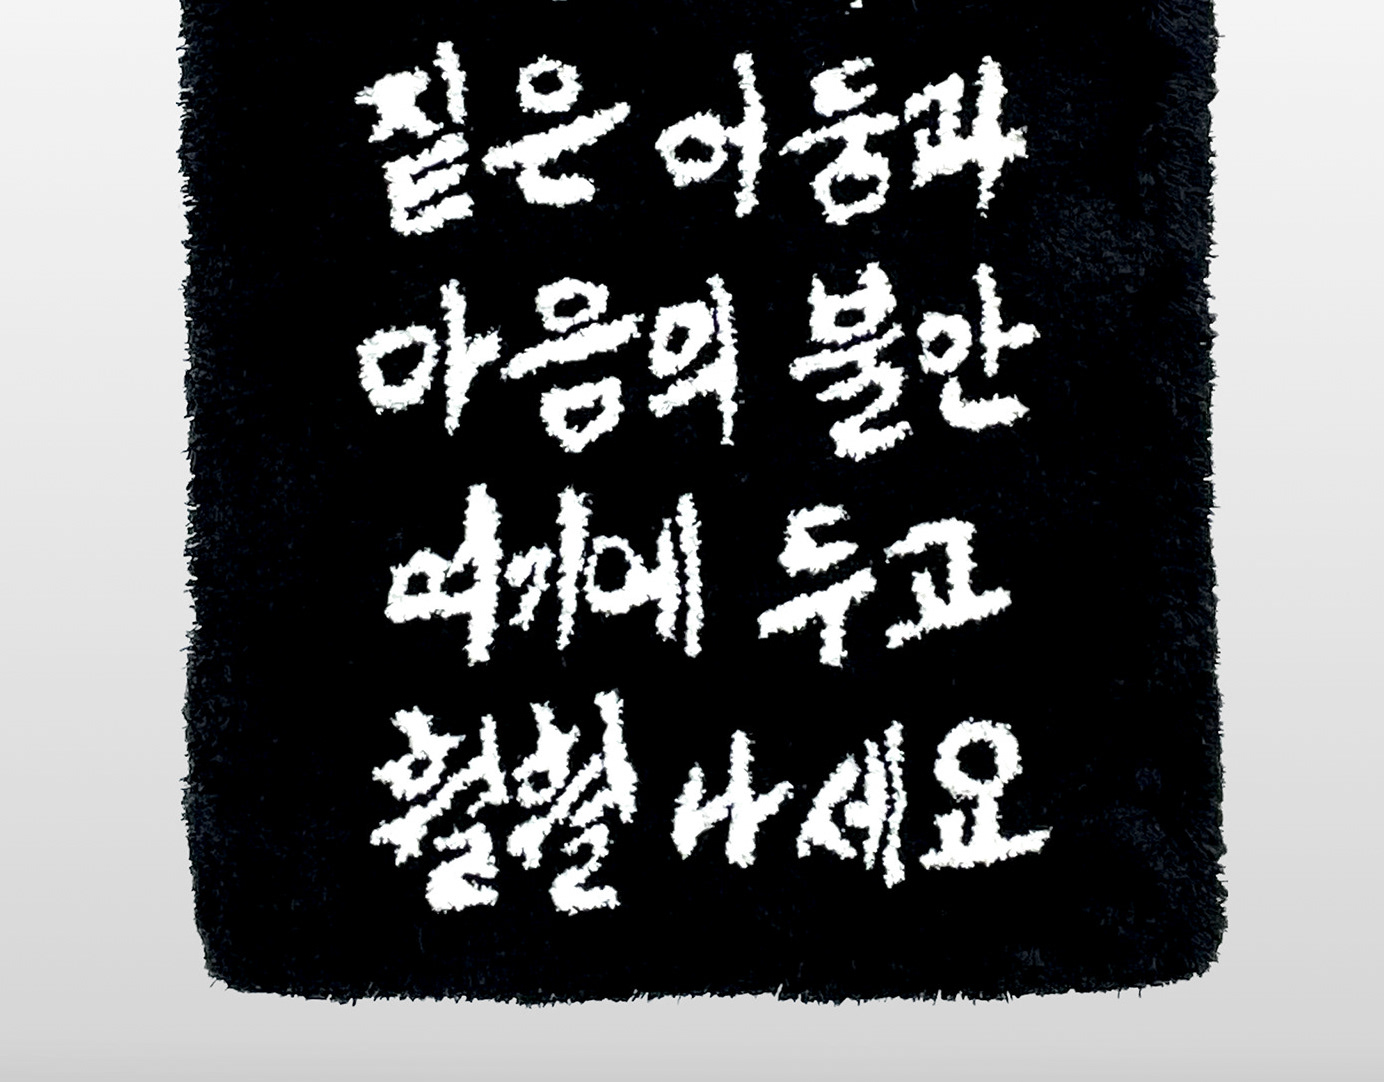 짙은 어둠과
마음의 불안
여기에 두고
훨훨 나세요